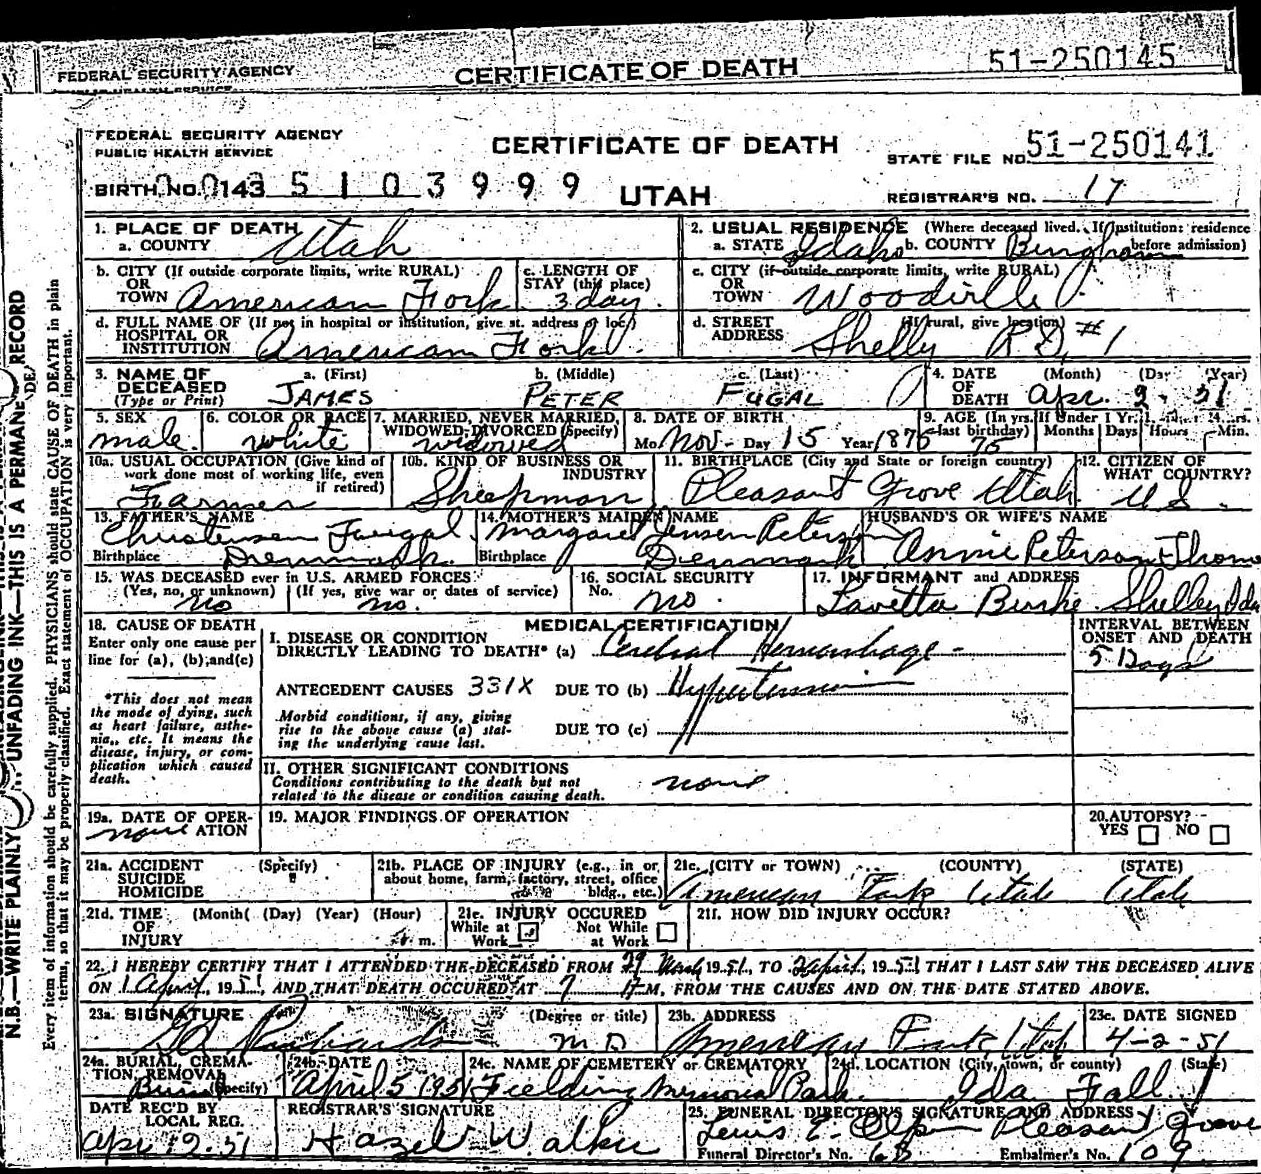 FEDERAL SECURITY AGENCY CERTIFICATE OF DEATH 51-250145
FEDERAL SECURITY AGENCY
PUBLIC HEALTH SERVICE
CERTIFICATE OF DEATH
STATE FILE NO. 51-250141
BIRTH NO. 0143 5 1 0 3 9 9 9
UTAH
REGISTRAR'S NO. 17
1. PLACE OF DEATH
a. COUNTY Utah
2. USUAL RESIDENCE (Where deceased lived. If institution: residence before admission)
a. STATE Idaho b. COUNTY Bingham
b. CITY (If outside corporate limits, write RURAL) OR TOWN American Fork
c. LENGTH OF STAY (this place) 3 day.
c. CITY (if outside corporate limits, write RURAL) OR TOWN Woodville
d. FULL NAME OF (If not in hospital or institution, give st. address or loc.) HOSPITAL OR INSTITUTION American Fork
d. STREET ADDRESS (If rural, give location) Shelly R.D. #1
3. NAME OF DECEASED (Type or Print)
a. (First) JAMES b. (Middle) PETER c. (Last) FUGAL
4. DATE OF DEATH (Month) (Day) (Year) Apr. 2 - 51
5. SEX male.
6. COLOR OR RACE white
7. MARRIED, NEVER MARRIED, WIDOWED, DIVORCED (Specify) widowed
8. DATE OF BIRTH Mo. Nov - Day 15 Year 1875
9. AGE (In yrs. last birthday) 75 If Under 1 Yr. Months Days Hours Min.
10a. USUAL OCCUPATION (Give kind of work done most of working life, even if retired) Farmer
10b. KIND OF BUSINESS OR INDUSTRY Sheepman
11. BIRTHPLACE (City and State or foreign country) Pleasant Grove Utah
12. CITIZEN OF WHAT COUNTRY? U.S.
13. FATHER'S NAME Christensen Fugal.
Birthplace Denmark.
14. MOTHER'S MAIDEN NAME Margaret Jensen Peterson
Birthplace Denmark
HUSBAND'S OR WIFE'S NAME Annie Peterson Thom
15. WAS DECEASED ever in U.S. ARMED FORCES?
(Yes, no, or unknown) no (If yes, give war or dates of service) no.
16. SOCIAL SECURITY No. no.
17. INFORMANT and ADDRESS Lavetta Burke. Shelley Ida
18. CAUSE OF DEATH
Enter only one cause per line for (a), (b) and(c)
*This does not mean the mode of dying, such as heart failure, asthenia, etc. It means the disease, injury, or complication which caused death.
MEDICAL CERTIFICATION
I. DISEASE OR CONDITION DIRECTLY LEADING TO DEATH* (a) Cerebral Hemorrhage -
INTERVAL BETWEEN ONSET AND DEATH 5 Days
ANTECEDENT CAUSES 331X DUE TO (b) Hypertension
Morbid conditions, if any, giving rise to the above cause (a) stating the underlying cause last.
DUE TO (c)
II. OTHER SIGNIFICANT CONDITIONS
Conditions contributing to the death but not related to the disease or condition causing death. none
19a. DATE OF OPERATION none
19. MAJOR FINDINGS OF OPERATION
20. AUTOPSY? YES NO
21a. ACCIDENT SUICIDE HOMICIDE (Specify)
21b. PLACE OF INJURY (e.g., in or about home, farm, factory, street, office bldg., etc.)
21c. (CITY or TOWN) (COUNTY) (STATE)
American Fork Utah Utah
21d. TIME OF INJURY (Month) (Day) (Year) (Hour) m.
21e. INJURY OCCURED While at Work Not While at Work
21f. HOW DID INJURY OCCUR?
22. I HEREBY CERTIFY THAT I ATTENDED THE DECEASED FROM 29 March 1951, TO 2 April, 1951 THAT I LAST SAW THE DECEASED ALIVE
ON 1 April, 1951, AND THAT DEATH OCCURED AT 7 M, FROM THE CAUSES AND ON THE DATE STATED ABOVE.
23a. SIGNATURE Richards (Degree or title) M D
23b. ADDRESS American Fork Utah
23c. DATE SIGNED 4-2-51
24a. BURIAL, CREMATION REMOVAL (Specify) Burial
24b. DATE April 5 1951
24c. NAME OF CEMETERY or CREMATORY Fielding Memorial Park.
24d. LOCATION (City, town, or county) (State) Ida Fall.
DATE REC'D BY LOCAL REG. Apr 12.51
REGISTRAR'S SIGNATURE Hazel Walker
25. FUNERAL DIRECTOR'S SIGNATURE AND ADDRESS Lewis E. Olpin Pleasant Grove
Funeral Director's No. 68 Embalmer's No. 109
N.B.—WRITE PLAINLY UNFADING INK—THIS IS A PERMANENT RECORD
Every item of information should be carefully supplied. PHYSICIANS should state CAUSE OF DEATH in plain
terms, so that it may be properly classified. Exact statement of OCCUPATION is very important.